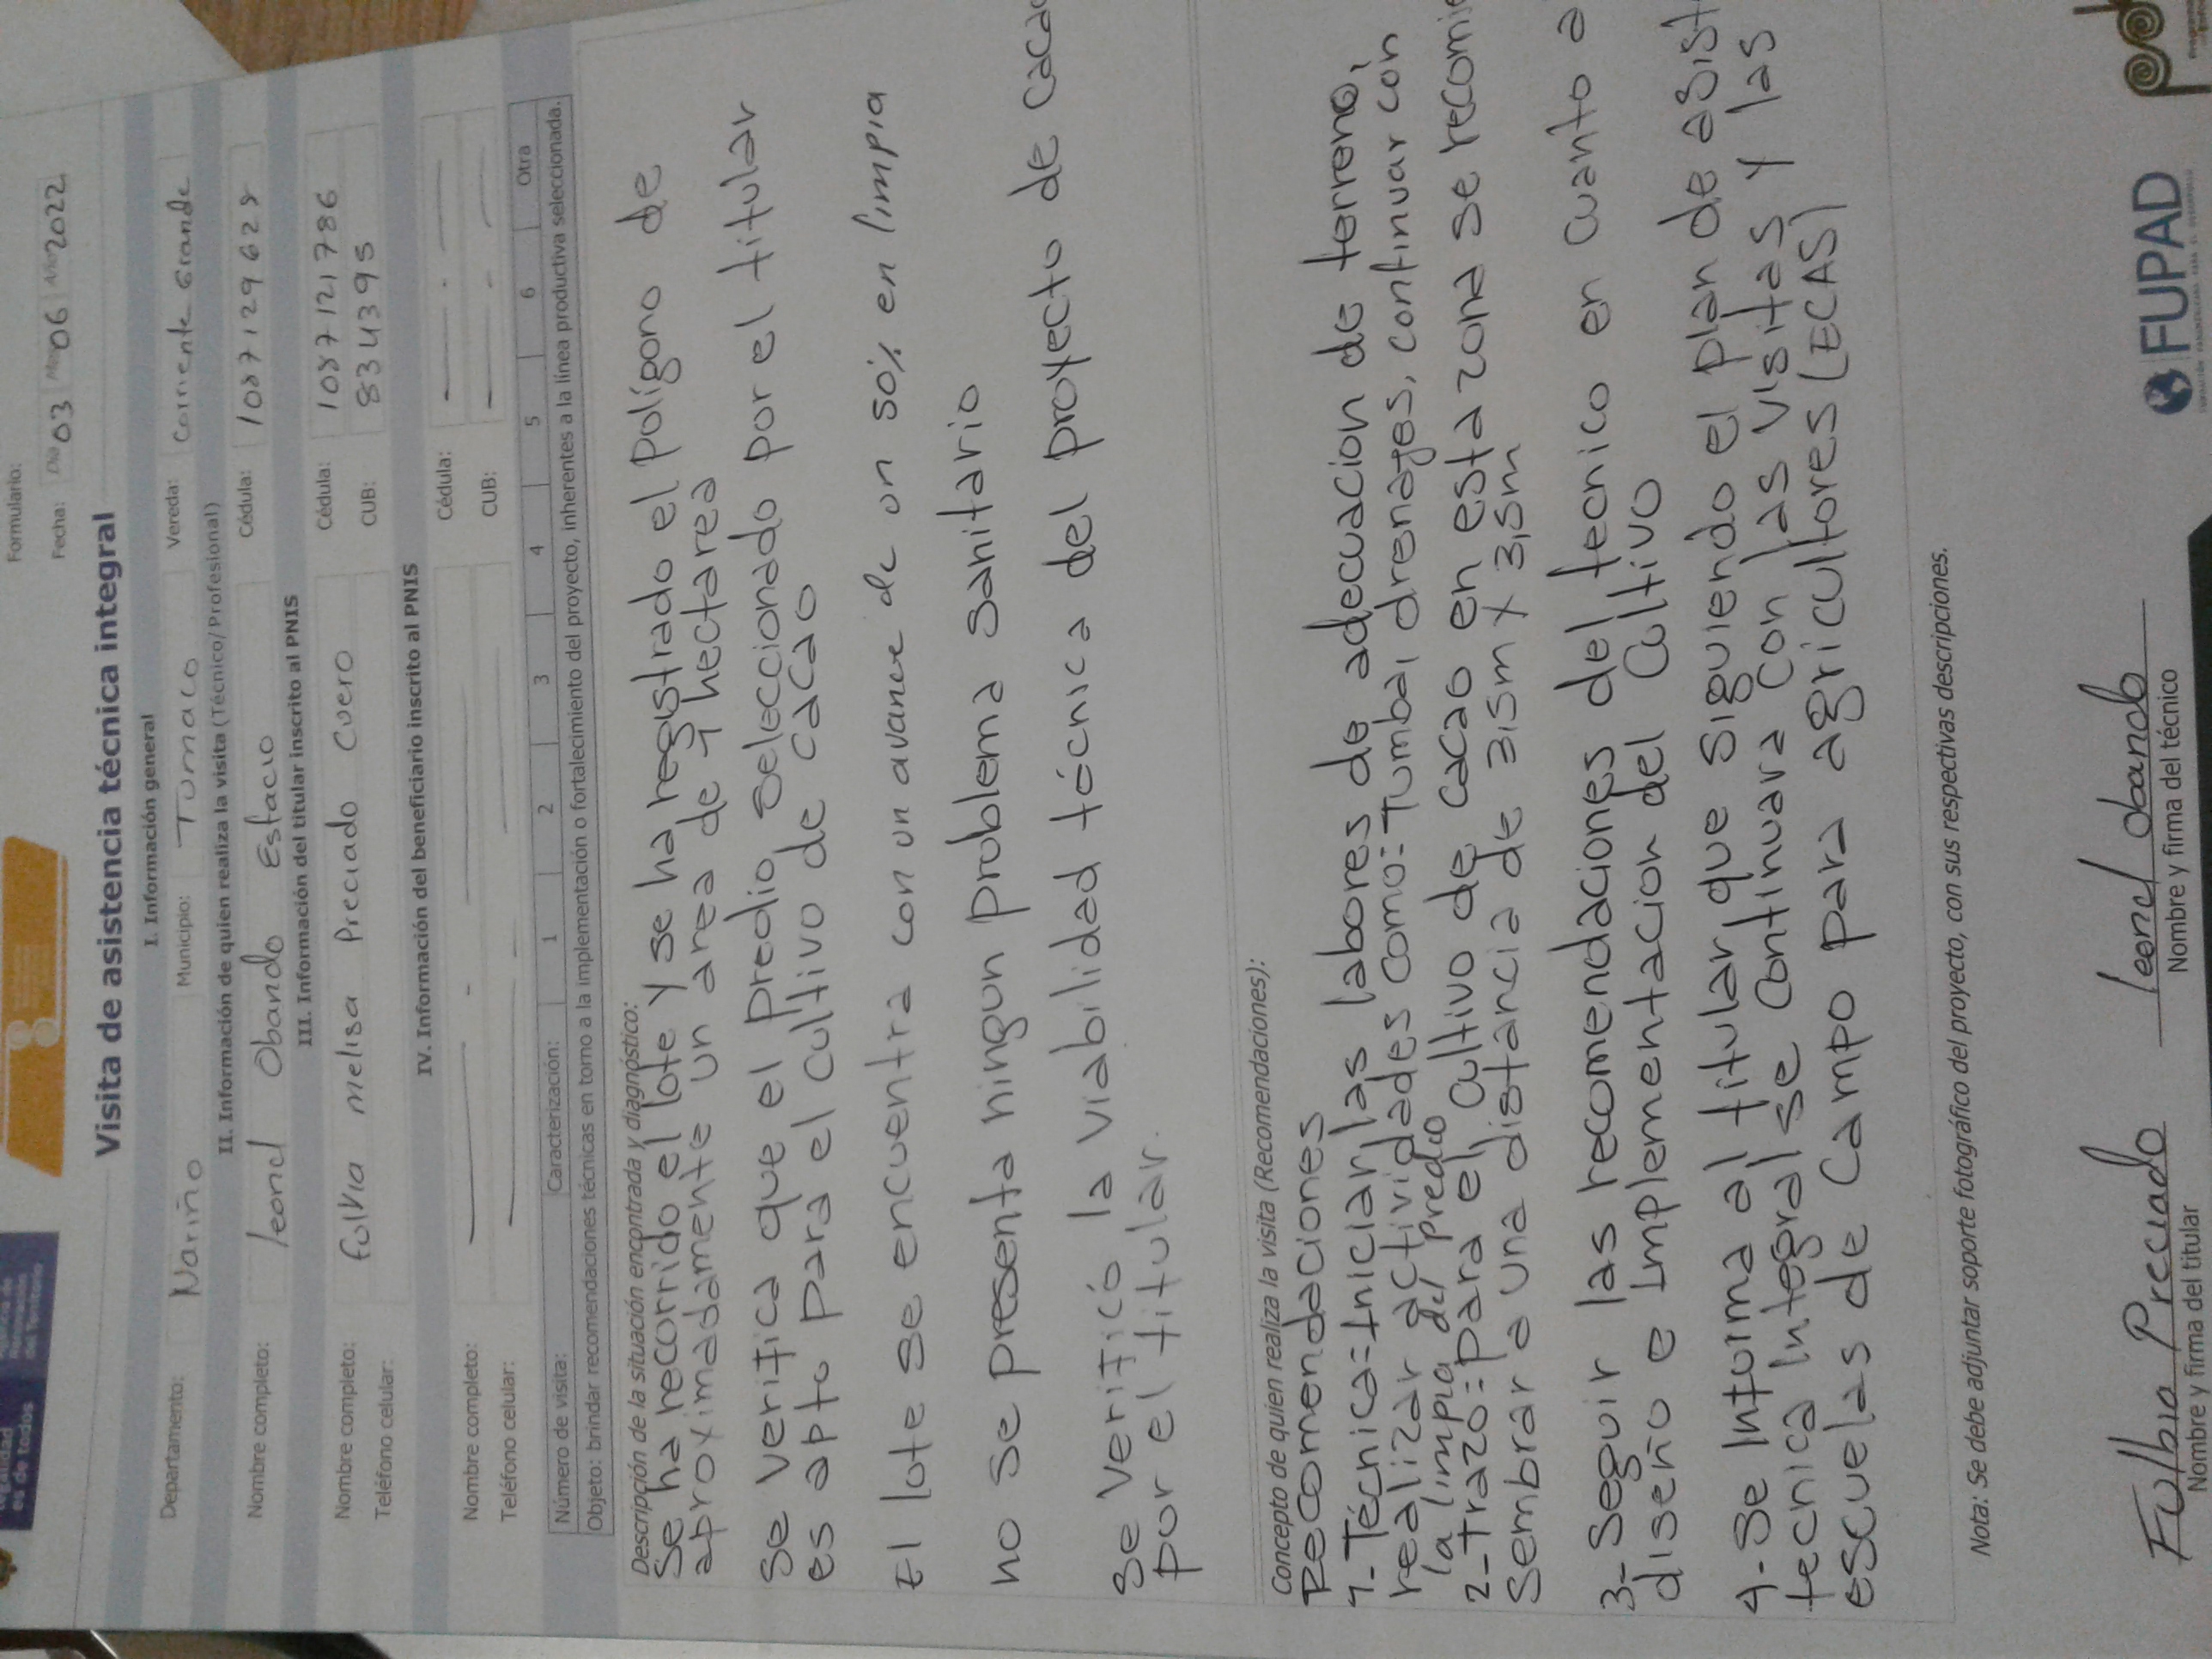 Formulario:
Fecha: Día 03 Mes 06 Año 2022
es de todos
del Territorio
Visita de asistencia técnica integral
I. Información general
Departamento: Nariño Municipio: Tumaco Vereda: Corriente Grande
II. Información de quien realiza la visita (Técnico/Profesional)
Nombre completo: leonel Obando Estacio Cédula: 1087129628
III. Información del titular inscrito al PNIS
Nombre completo: fulvia melisa Preciado Cuero Cédula: 1087121786
Teléfono celular: CUB: 834395
IV. Información del beneficiario inscrito al PNIS
Nombre completo: Cédula:
Teléfono celular: CUB:
Número de visita: Caracterización: 1 2 3 4 5 6 Otra
Objeto: brindar recomendaciones técnicas en torno a la implementación o fortalecimiento del proyecto, inherentes a la línea productiva seleccionada.
Descripción de la situación encontrada y diagnóstico:
Se ha recorrido el lote y se ha registrado el polígono de
aproximadamente un area de 1 hectarea
se verifica que el predio seleccionado por el titular
es apto para el cultivo de cacao
El lote se encuentra con un avance de un 50% en limpia
no se presenta ningun problema sanitario
se verificó la viabilidad técnica del proyecto de
por el titular.
Concepto de quien realiza la visita (Recomendaciones):
Recomendaciones
1- Técnica= Iniciar las labores de adecuacion de terreno,
realizar actividades como= Tumba, drenages, continuar con
la limpia del predio
2- Trazo= para el cultivo de cacao en esta zona se
sembrar a una distancia de 3,5m x 3,5m
3- Seguir las recomendaciones del tecnico en cuanto a
diseño e Implementacion del cultivo
4- Se Informa al titular que siguiendo el plan de
tecnica Integral se continuara con las visitas y las
escuelas de campo para agricultores (ECAS)
Nota: Se debe adjuntar soporte fotográfico del proyecto, con sus respectivas descripciones.
Fulbia Preciado leonel obando
Nombre y firma del titular Nombre y firma del técnico
FUPAD